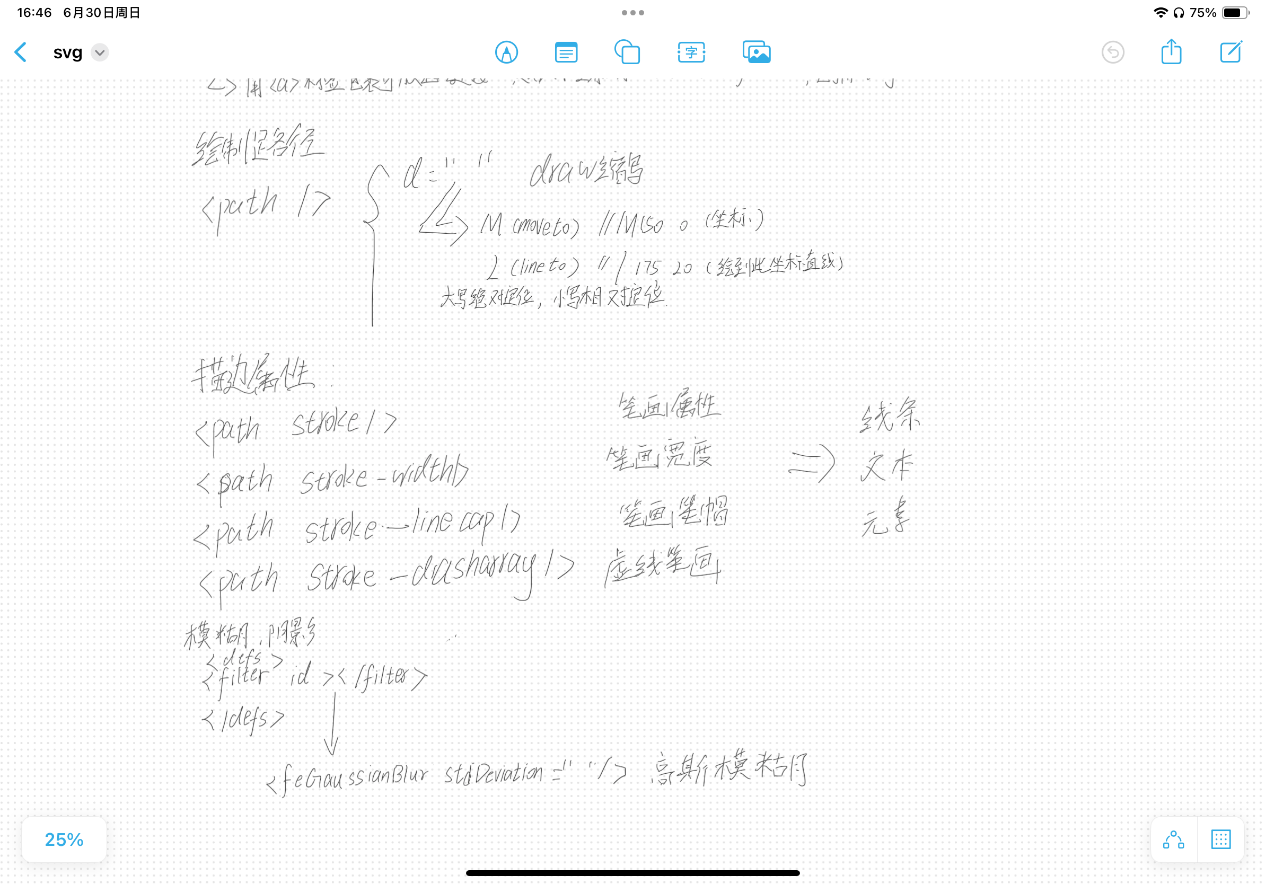 16:46 6月30日周日
75%
svg
字
用<a>标签包裹
绘制路径
<path /> d=" " draw缩写
M (moveto) //M150 0 (坐标)
L (lineto) //l 175 20 (绘到此坐标直线)
大写绝对定位, 小写相对定位.
描边属性:
<path stroke/> 笔画属性 线条
<path stroke-width/> 笔画宽度 => 文本
<path stroke-linecap/> 笔画笔帽 元素
<path stroke-dasharray/> 虚线笔画
模糊,阴影
<defs>
<filter id ></filter>
</defs>
<feGaussianBlur stdDeviation=" "/> 高斯模糊
25%